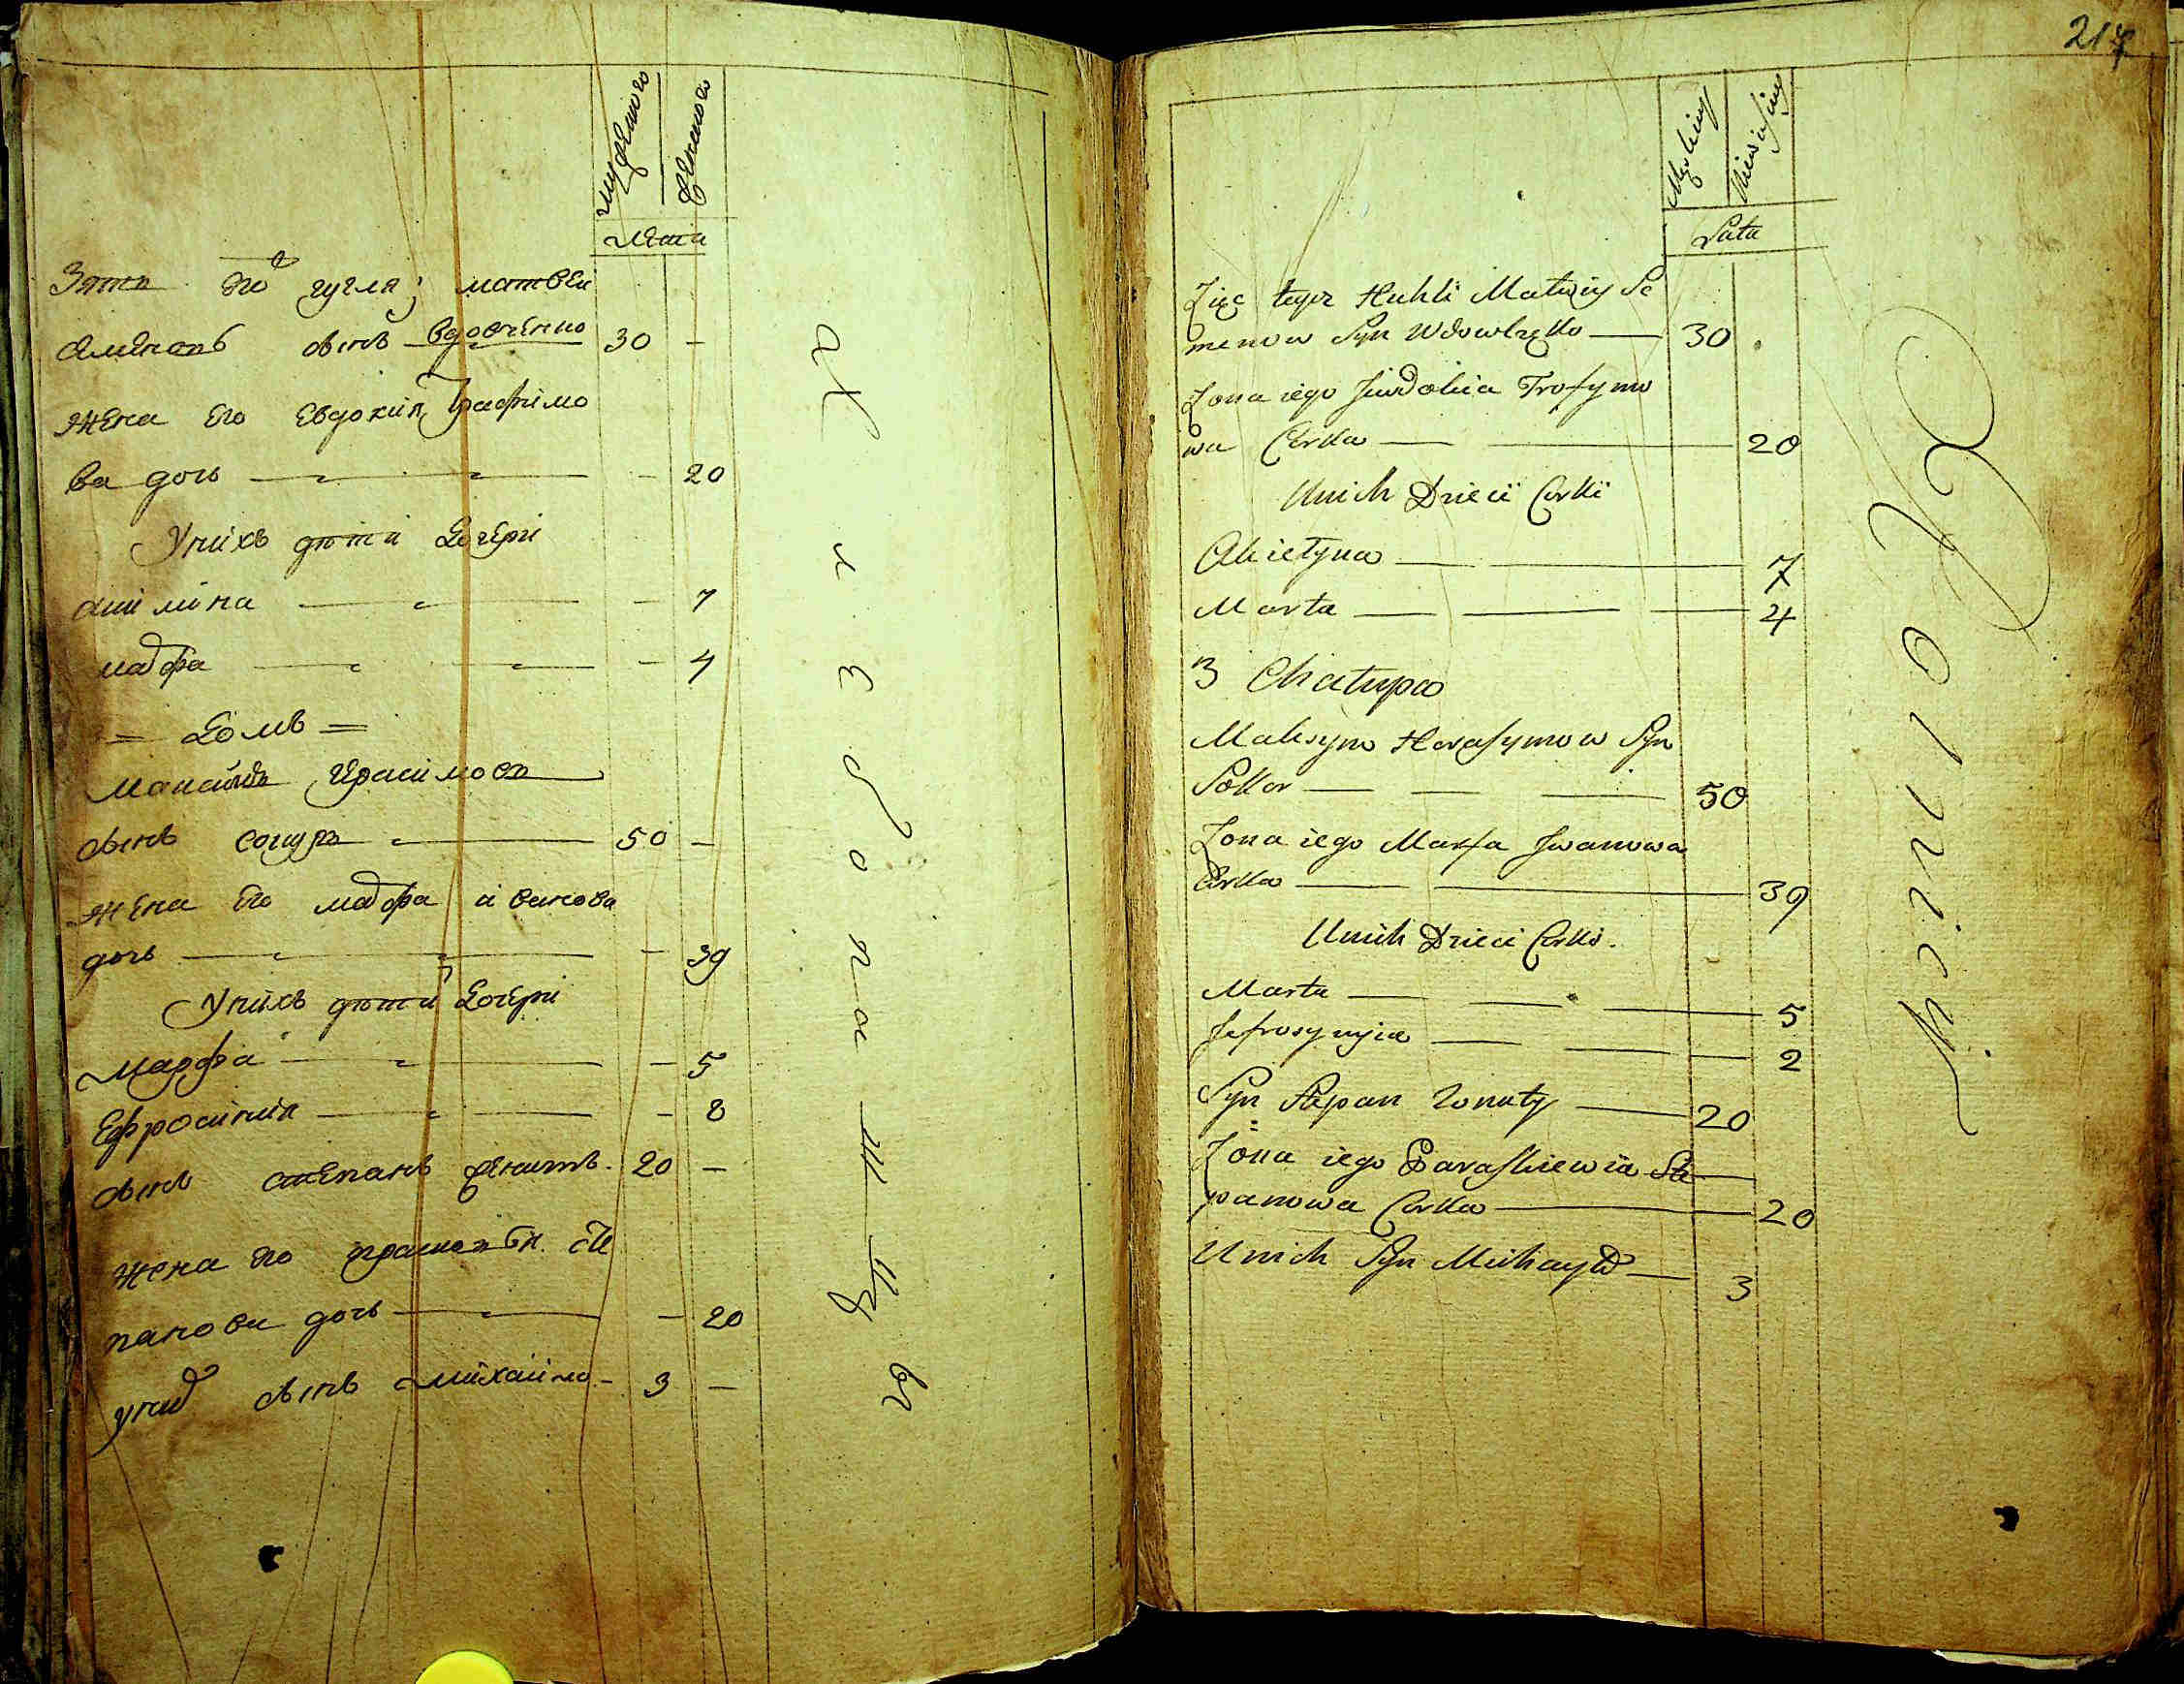 мужеска
женска
лета
Зять его гугля матвей
Семенов сын вдовченко 30 -
жена его Евдокия Трафимо
ва дочь - 20
У них дети дочери
акилина - 7
марфа - 4
= Домъ =
Максимъ Герасимовъ
сынъ 50 -
жена его марфа иванова
дочь - 39
У нихъ дети дочери
Марфа - 5
Ефросиния - 2
сынъ степанъ женатъ 20 -
жена его Ște
панова дочь - 20
у них сынъ михайло - 3 -
217
Męskiey
Niewiesciey
Lata
Zięc tegoż Huhli Matwiy Se
menow Syn Wdowczęko 30
Zona iego Jewdokia Trofymo
wa Corka 20
Unich Dzieci Corki
Akietyna 7
Marta 4
3 Chatupa
Maksym Harasymow Syn
Sokor 50
Zona iego Marfa Jwanowa
Corka 39
Unich Dzieci Corki.
Marta 5
Jefrosynyia 2
Syn Stepan Zonaty 20
Zona iego Paraskiewia Ste
panowa Corka 20
Unich Syn Michayło 3